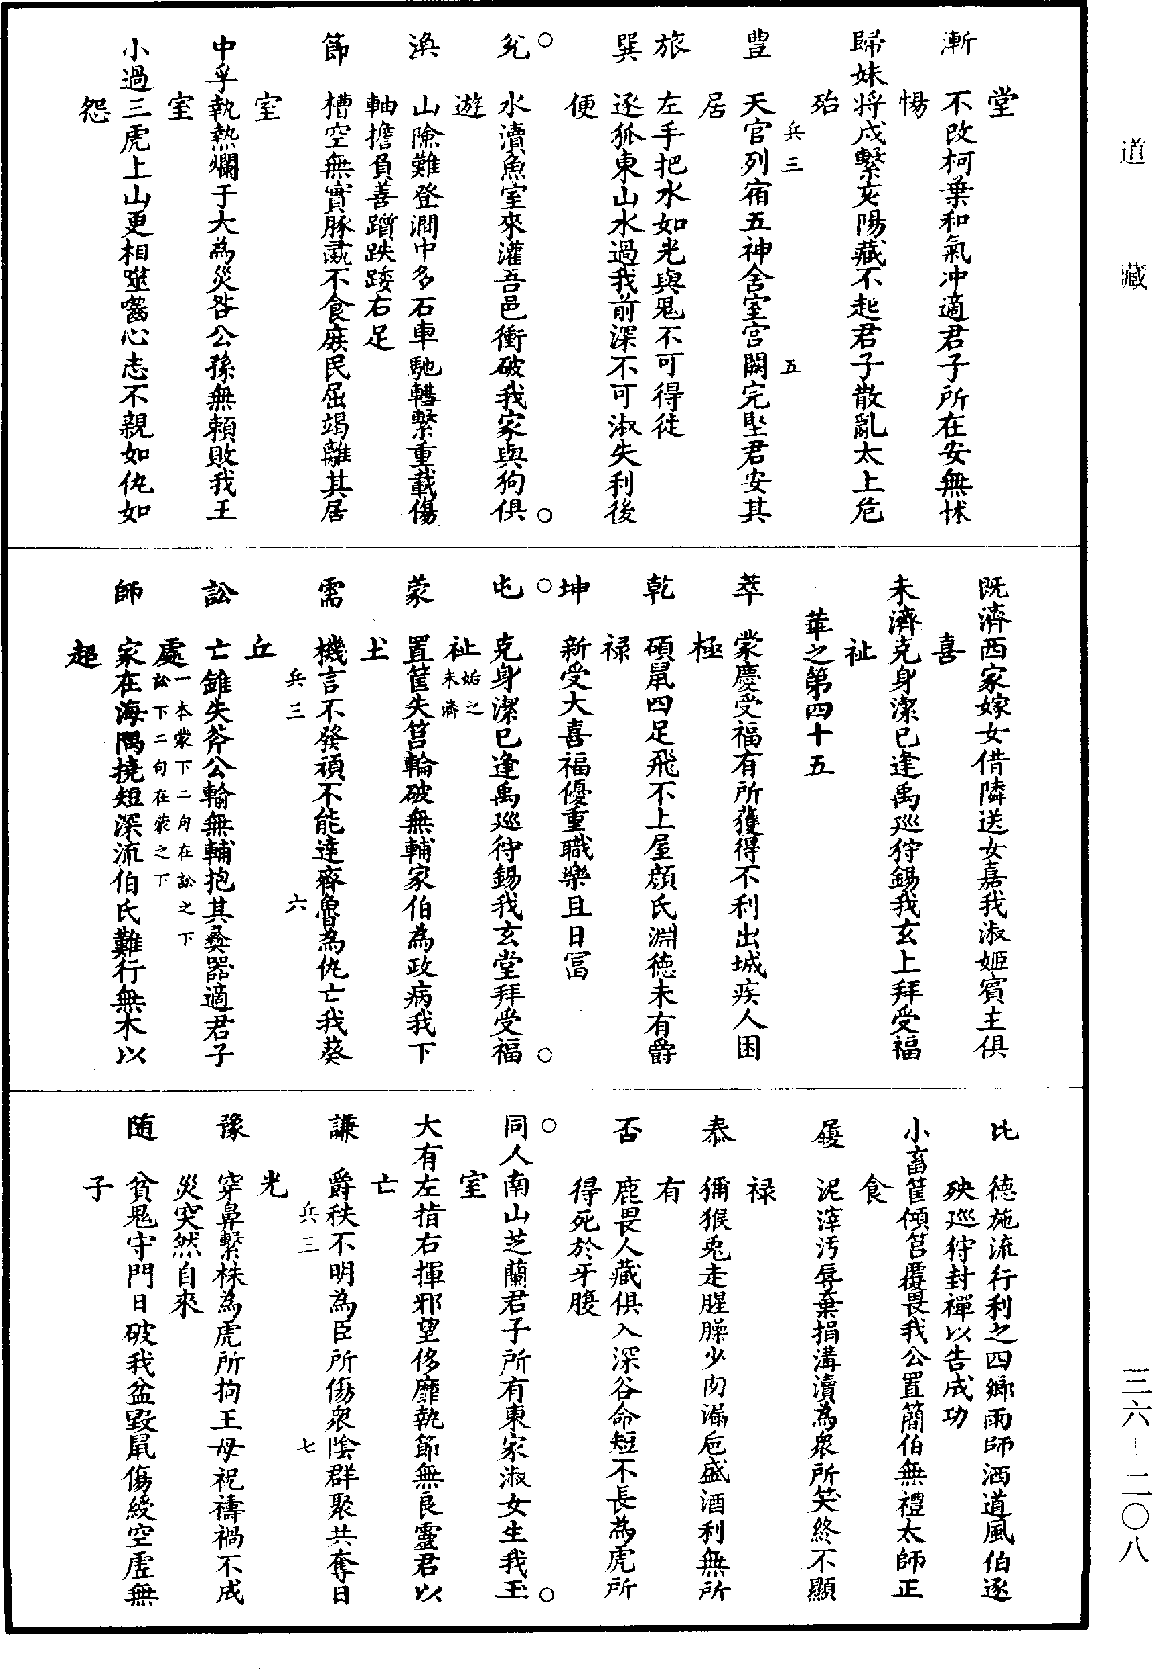 道藏
堂
漸　不改柯葉和氣冲適君子所在安無怵
惕
歸妹將戍繫亥陽藏不起君子散亂太上危
殆
兵三　五
豊　天官列宿五神舍室宫闕完堅君安其
居
旅　左手把水如光與鬼不可得從
巽　逐狐東山水過我前深不可淑失利後
便
兊　水瀆魚室來灌吾邑衝破我家與狗俱
遊
渙　山險難登澗中多石車馳轊繫重載傷
軸擔負善躓跌踒右足
節　槽空無實豚彘不食庶民屈竭離其居
室
中孚執熱爛手大為災咎公孫無賴敗我王
室
小過三虎上山更相噬嚙心志不親如仇如
怨
既濟西家嫁女借隣送女嘉我淑姬賓主俱
喜
未濟克身潔已逢禹巡狩錫我玄上拜受福
祉
萃之第四十五
萃　蒙慶受福有所獲得不利出城疾人困
極
乾　碩鼠四足飛不上屋顔氏淵德未有爵
禄
坤　新受大喜福優重職樂且日冨
屯　克身潔已逢禹巡狩錫我玄堂拜受福
祉姤之未濟
蒙　置筐失筥輪破無輔家伯為政病我下
土
需　機言不發頑不能達齊魯為仇亡我葵
丘
兵三　六
訟　亡錐失斧公輸無輔抱其彝器適君子
處一本蒙下二句在訟之下訟下二句在蒙之下
師　家在海隅撓短深流伯氏難行無木以
趍
比　德施流行利之四鄉雨師洒道風伯逐
殃巡狩封禪以告成功
小畜筐傾筥覆畏我公置簡伯無禮太師正
食
履　泥滓汚辱棄捐溝瀆為衆所笑終不顯
禄
泰　獼猴兎走腥臊少肉漏巵盛酒利無所
有
否　鹿畏人藏俱入深谷命短不長為虎所
得死於牙腹
同人南山芝蘭君子所有東家淑女生我玉
室
大有左指右揮邪望侈靡執節無良靈君以
亡
謙　爵秩不明為臣所傷衆陰群聚共奪日
光
兵三　七
豫　穿鼻繫株為虎所拘王母祀禱禍不成
災突然自來
随　貧鬼守門日破我盆毀鼠傷綬空虛無
子
三六—二〇八